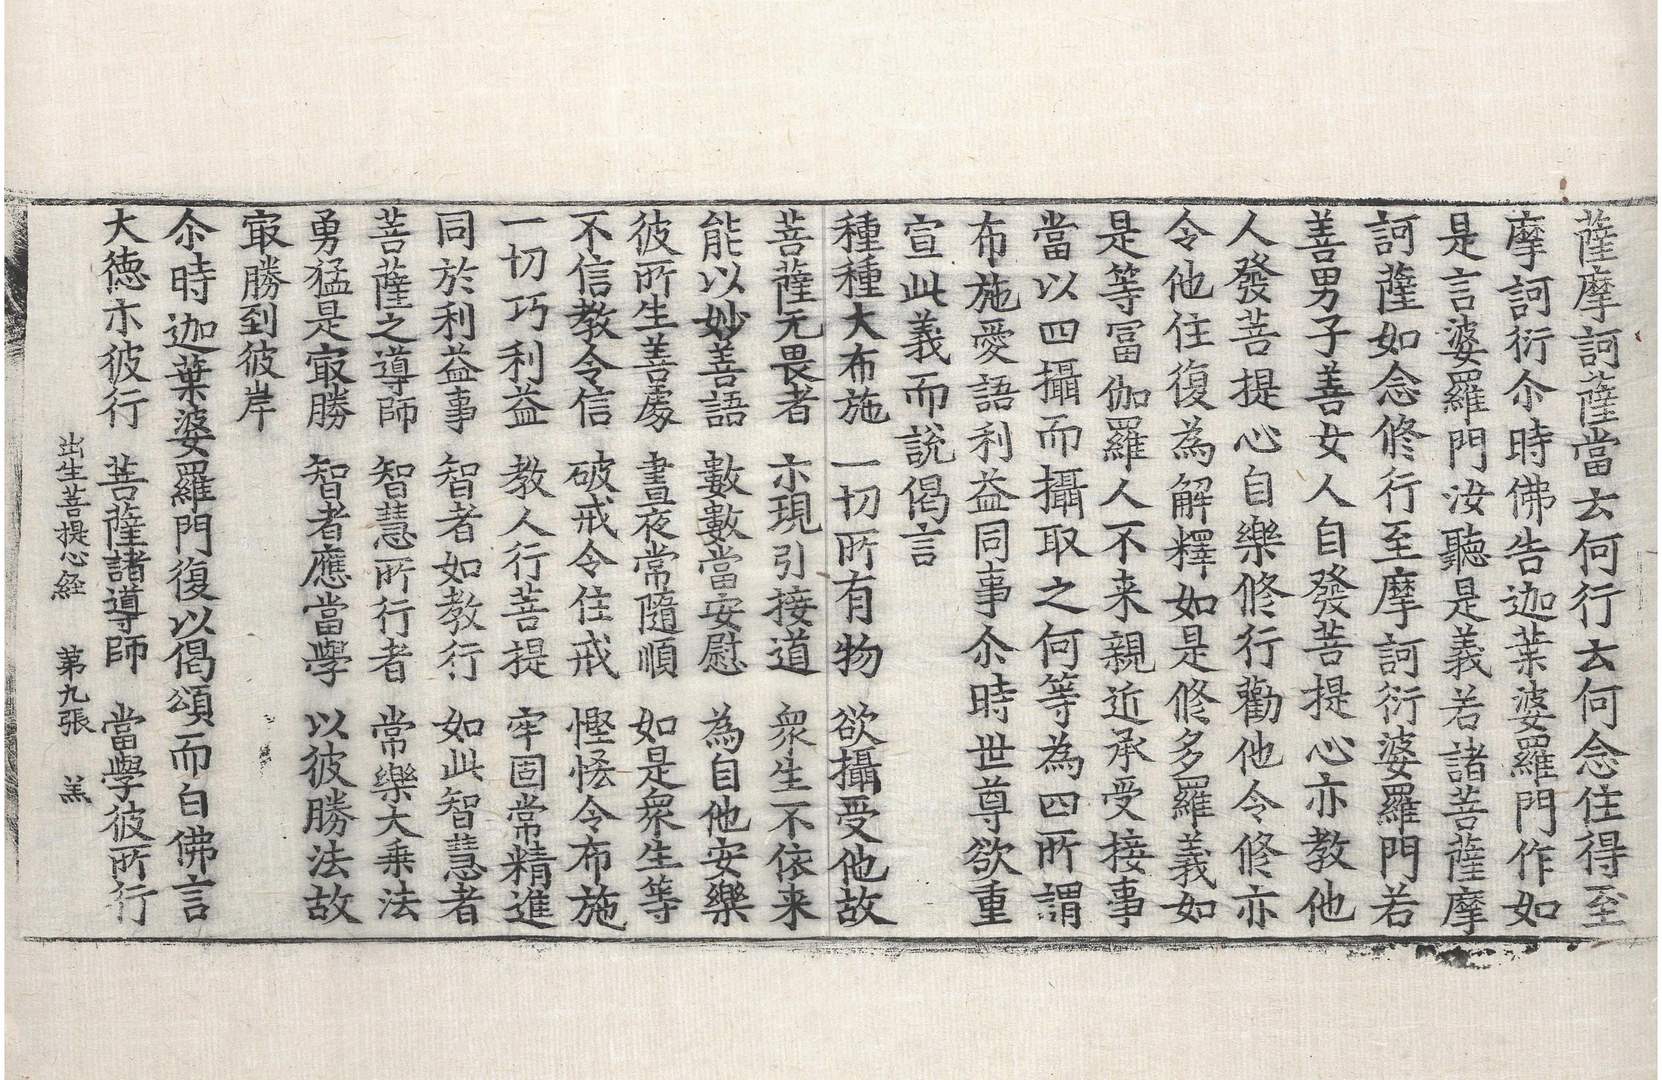 薩摩訶薩當去何行去何念住得至
摩訶衍尒時佛告迦葉婆羅門作如
是言婆羅門汝聽是義若諸菩薩摩
訶薩如念修行至摩訶衍婆羅門若
善男子善女人自發菩提心亦教他
人發菩提心自樂修行勸他令修亦
令他住復為解釋如是修多羅義如
是等冨伽羅人不来親近承受接事
當以四攝而攝取之何等為四所謂
布施愛語利益同事尒時世尊欲重
宣此義而說偈言
種種大布施 一切所有物 欲攝受他故
菩薩无畏者 亦現引接道 眾生不依来
能以妙善語 數數當安慰 為自他安樂
彼所生善處 晝夜常隨順 如是眾生等
不信教令信 破戒令住戒 慳悋令布施
一切巧利益 教人行菩提 牢固常精進
同於利益事 智者如教行 如此智慧者
菩薩之導師 智慧所行者 常樂大乘法
勇猛是㝡勝 智者應當學 以彼勝法故
㝡勝到彼岸
尒時迦葉婆羅門復以偈頌而白佛言
大德亦彼行 菩薩諸導師 當學彼所行
出生菩提心経 第九張 羔